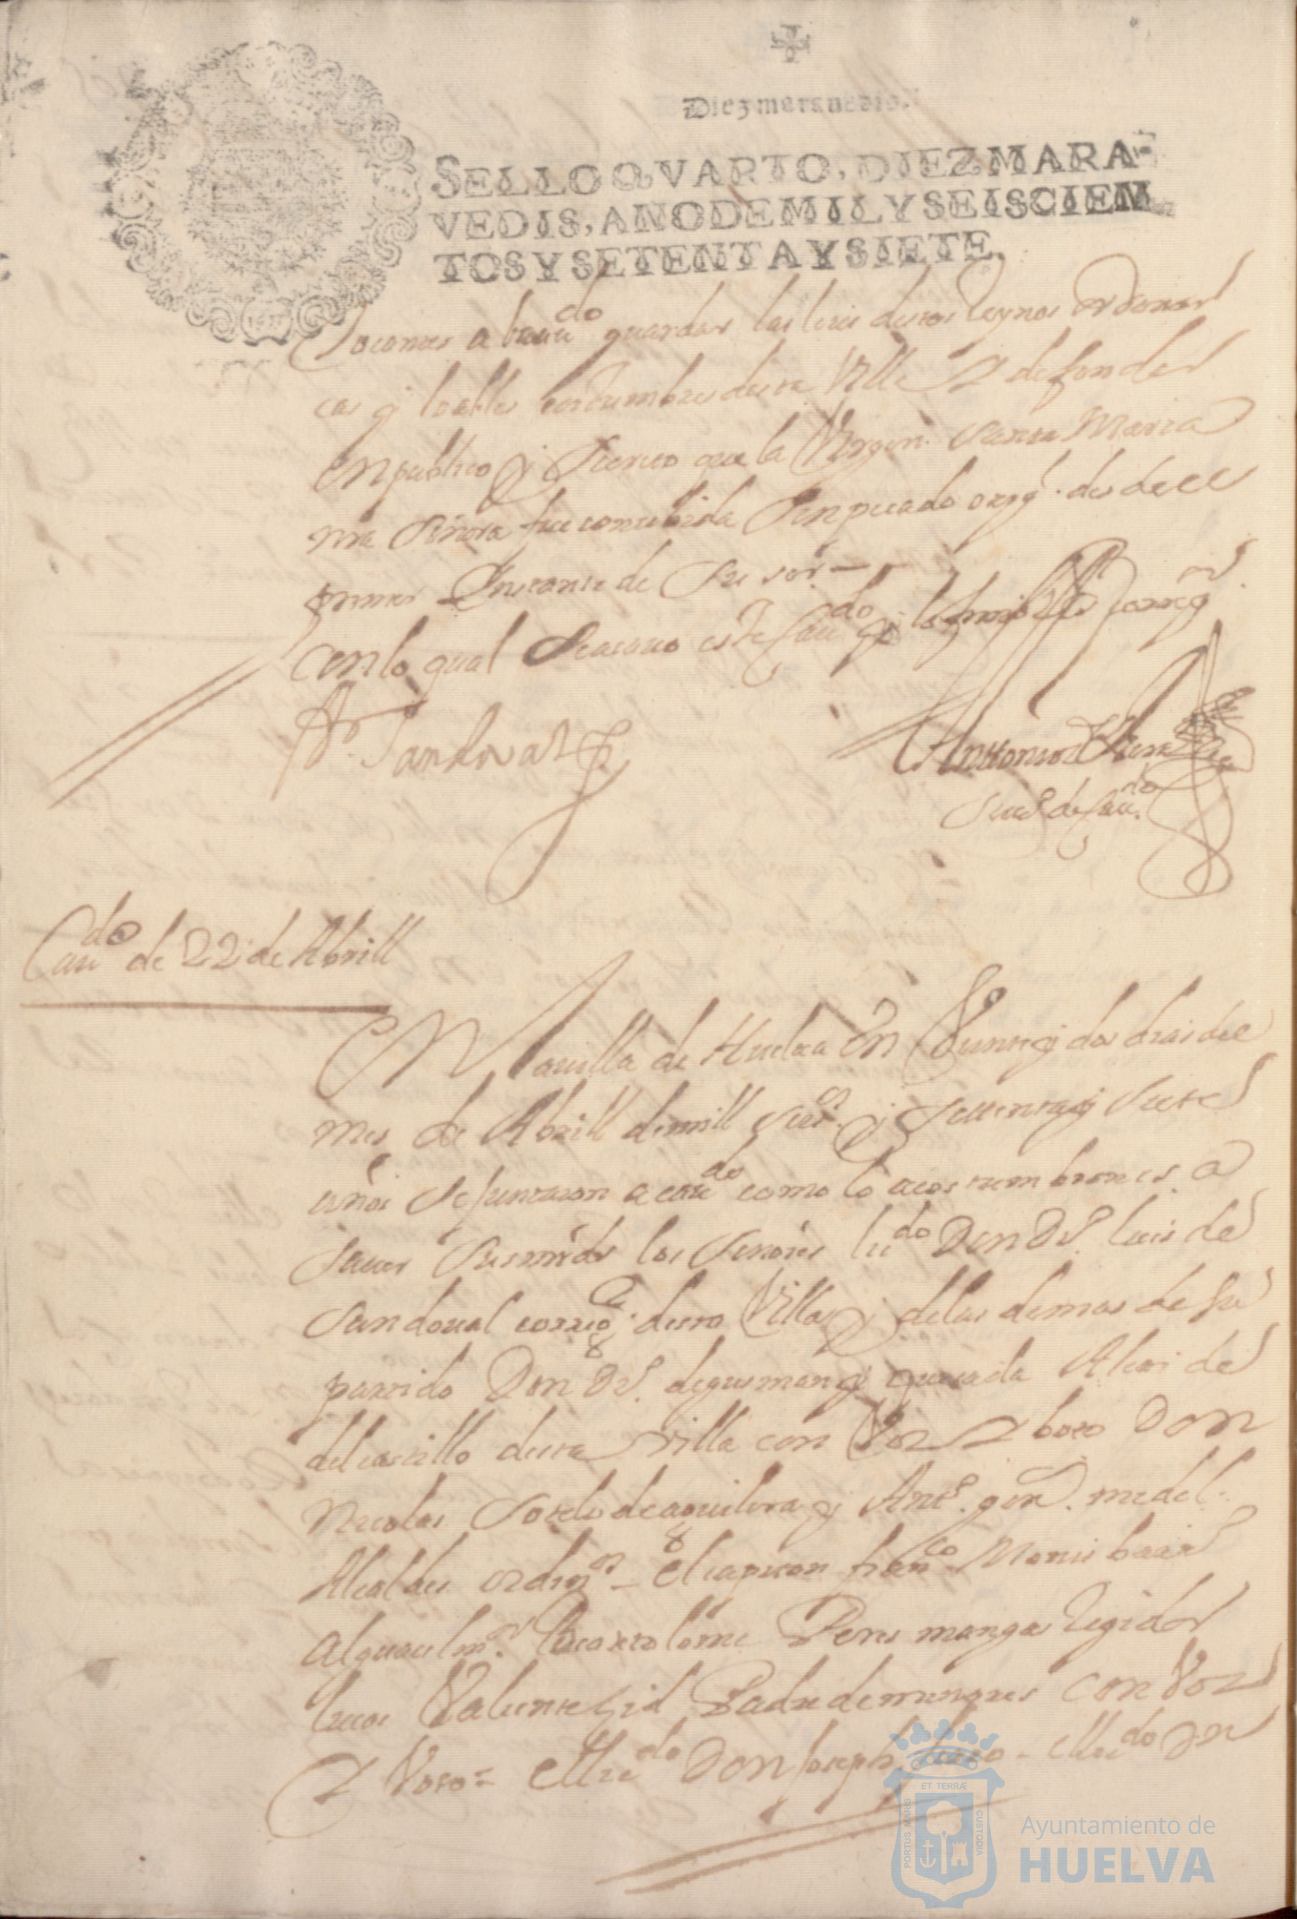 Diez maravedis.
SELLO QVARTO, DIEZ MARA-
VEDIS, AÑO DE MIL Y SEISCIEN
TOS Y SETENTA Y SIETE.
a cauildo guardar las leies destos Reynos ordenan
cas y loables costumbres desta Villa Y defender
En publico y Secreto que la Virgen Santa Maria
nra Señora fue concebida Sin pecado orig.l desde el
primer Instante de Su ser —
Con lo qual Se acauo este Cau.do y lo firmo el Sr Correg.or
Sandoval
Antonio
Secr.o de Cau.do
Cau.do de 22 de Abrill
En la villa de Huelva En Veinte y dos dias del
mes de Abrill de mill Seis.os y Settenta y Siete
años Se juntaron a cau.do como lo acostumbran es a
Sauer Sus mrds los Señores licdo Don D.o luis de
Sandoual correg.or desta Villa y de las demas de su
partido Don D.o de gusman y quesada Alcai de
del castillo desta Villa con Voz Y boto Don
Nicolas Sotelo de aguilera y Ant.o gra. medel
Alcaldes ordin.os – El capitan fran.co
Alguacil m.or Bartolome Peres manga Regidor
lucas Valiente Con Voz
Y Voto = El licdo Don Joseph – El licdo Dn
PORTUS MARIS ET TERRÆ CUSTODIA
Ayuntamiento de
HUELVA